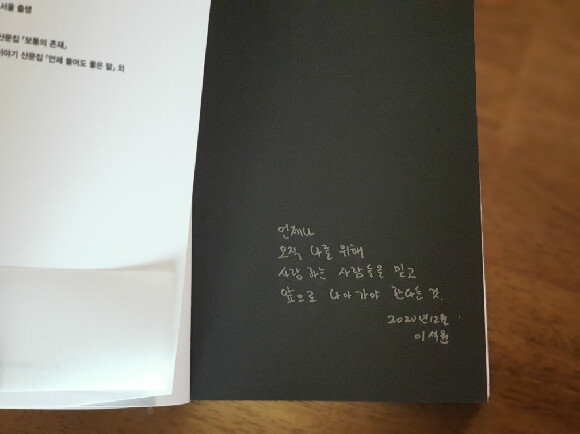 서울 출생
산문집 『보통의 존재』
이야기 산문집 『언제 들어도 좋은 말』 외
언제나
오직 나를 위해
사랑하는 사람들을 믿고
앞으로 나아가야 한다는 것.
2020년 12월
이석원